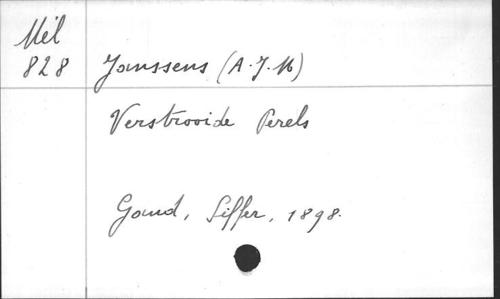 Mél
828
Janssens (A.J.M)
Verstrooide Perels
Gand, Siffer, 1898.